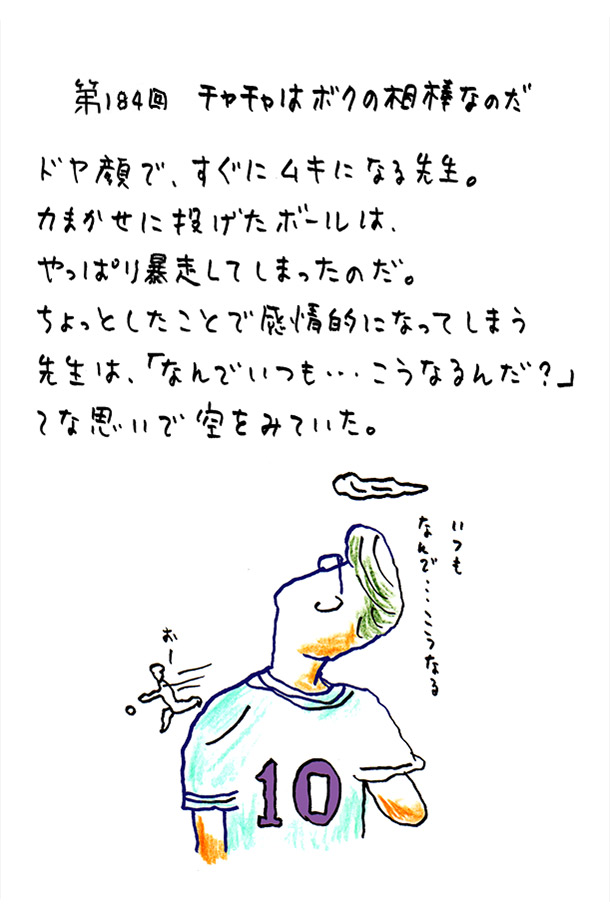 第184回 チャチャはボクの相棒なのだ
ドヤ顔で、すぐにムキになる先生。
力まかせに投げたボールは、
やっぱり暴走してしまったのだ。
ちょっとしたことで感情的になってしまう
先生は、「なんでいつも…こうなるんだ?」
てな思いで空をみていた。
いつも
なんで…こうなる
おー
10